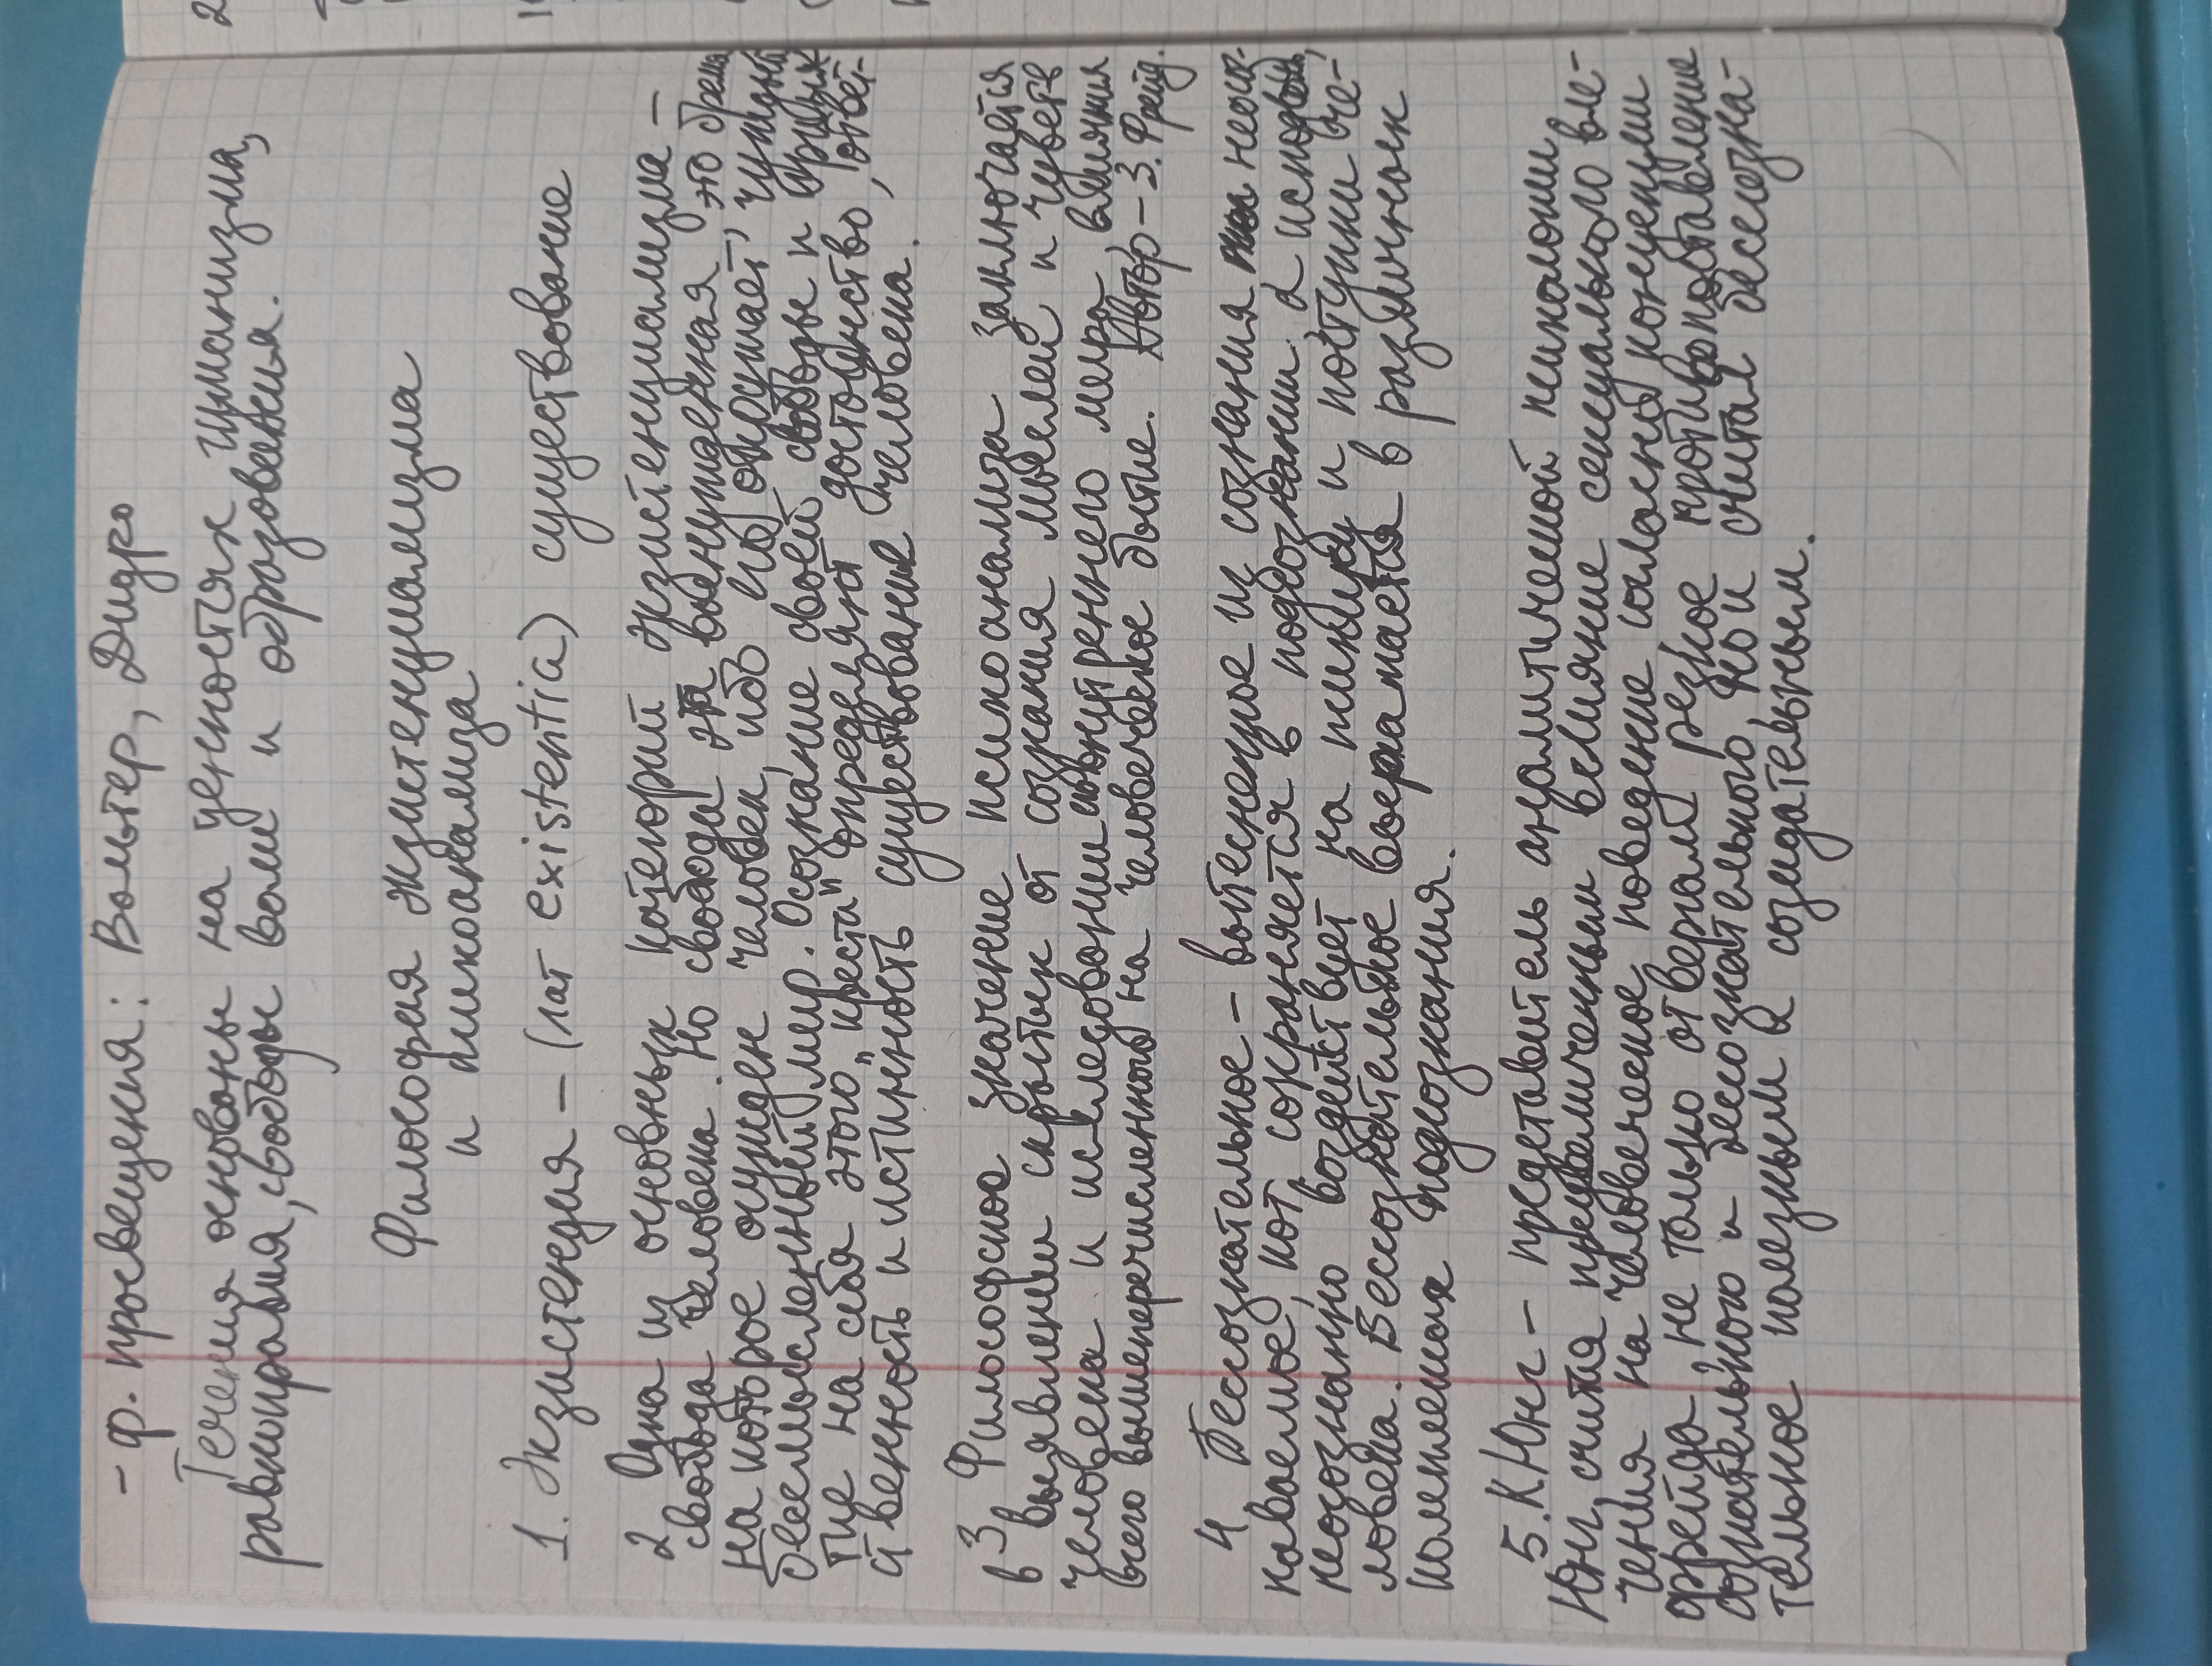 - ф. просвещения: Вольтер, Дидро
Течения основаны на ценностях гуманизма,
равноправия, свободы воли и образования.
Философия экзистенциализма
и психоанализа
1. Экзистенция – (лат existentia) существование
2 Одна из основных категорий экзистенциализма –
свобода человека. Но свобода эта вынужденная, это бремя
на которое осужден человек, ибо по опросшает, чуждый
бессмысленный мир. Осознание своей свободы и приня-
тие на себя этого "креста" определяют достоинство, ответ-
ственность и истинность существование человека.
3 Философское значение психоанализа заключается
в выявлении скрытых от сознания мыслей и чувств
человека и исследовании внутреннего мира, влияния
всего вышеперечисленного на человеческое бытие. Автор – З. Фрейд.
4 Бессознательное – вытесненное из сознания неосо-
наваемое, кот сохраняется в подсознании а исподволь,
неосознанно воздействует на мимику и поступки че-
ловека. Бессознательное выражается в различных
комплексах подсознания.
5. К. Юнг – представитель аналитической психологии
Юнг, считая преувеличенным влияние сексуального вле-
чения на человеческое поведение согласно концепции
Фрейда, не только отвергал резкое противопоставление
сознательного и бессознательного, но и считал бессозна-
тельное полезным и созидательным.